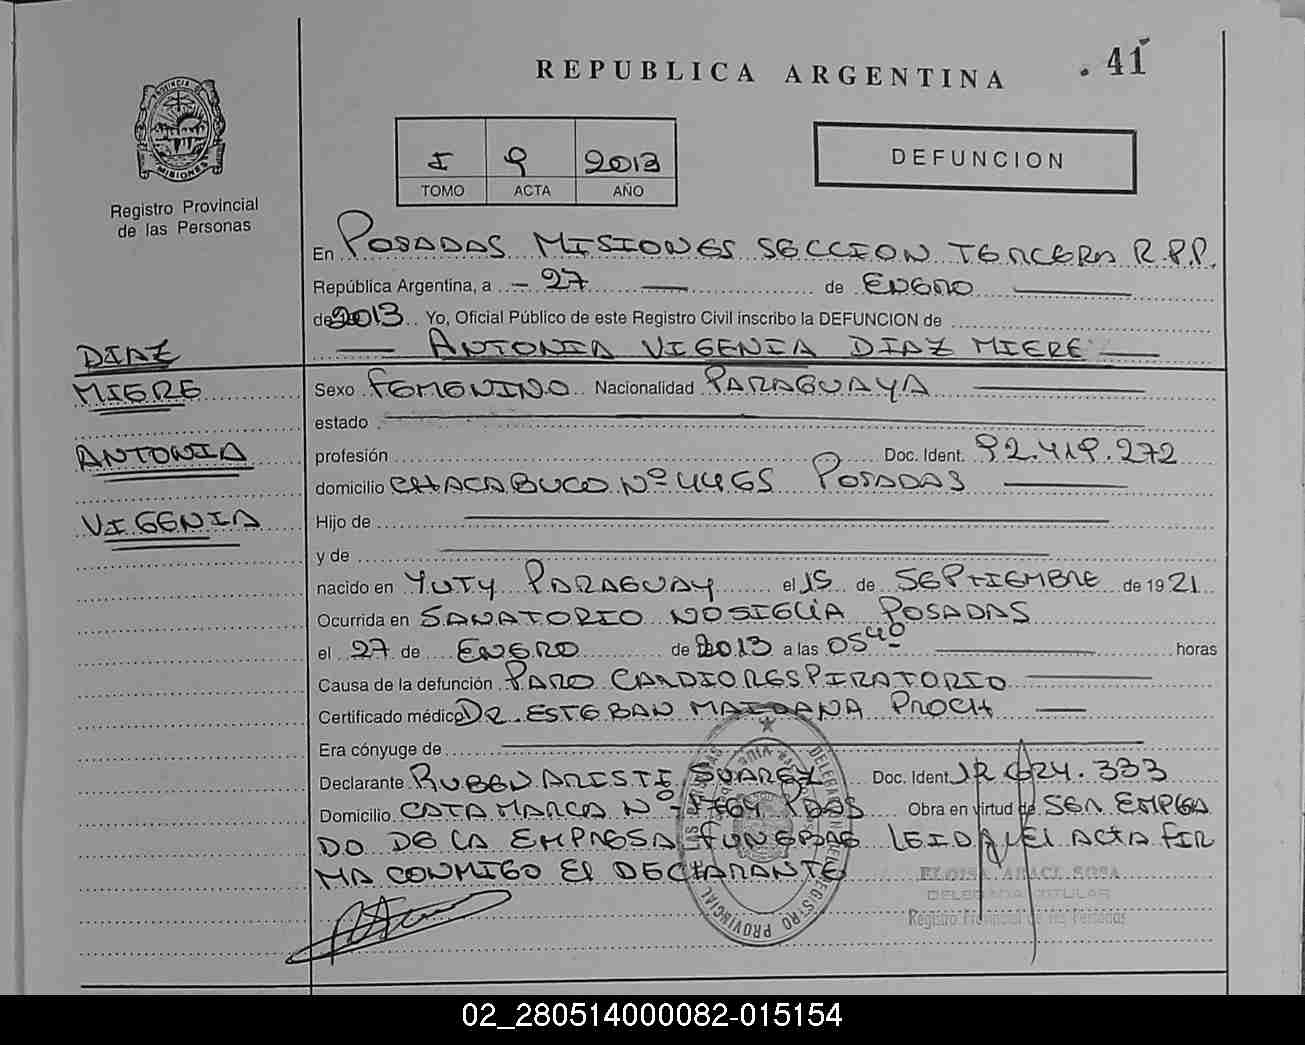 REPUBLICA ARGENTINA
. 41
PROVINCIA DE
MISIONES
Registro Provincial
de las Personas
I 9 2013
TOMO ACTA AÑO
DEFUNCION
En POSADAS MISIONES SECCION TERCERA R.P.P.
República Argentina, a - 27 — de ENERO —
de 2013 Yo, Oficial Público de este Registro Civil inscribo la DEFUNCION de
— ANTONIA VIGENIA DIAZ MIERE —
DIAZ
MIERE
ANTONIA
VIGENIA
Sexo FEMENINO Nacionalidad PARAGUAYA —
estado —
profesión Doc. Ident. 92.419.272
domicilio CHACABUCO Nº 4465 POSADAS —
Hijo de —
y de —
nacido en YUTY PARAGUAY el 15 de SEPTIEMBRE de 1921
Ocurrida en SANATORIO NOSIGLIA POSADAS
el 27 de ENERO de 2013 a las 05 40 — horas
Causa de la defunción PARO CARDIORESPIRATORIO —
Certificado médico DR. ESTEBAN MAIDANA PROCH —
Era cónyuge de —
Declarante RUBEN ARISTI SUAREZ Doc. Ident. .333
Domicilio CATAMARCA Nº PDAS Obra en virtud de SER EMPLEA
DO DE LA EMPRESA FUNEBRE LEIDA EL ACTA FIR
MA CONMIGO El DECLARANTE
ELOISA ARACI SOSA
DELEGADA TITULAR
Registro Provincial de las Personas
REGISTRO PROVINCIAL
LAS PERSONAS
02_280514000082-015154